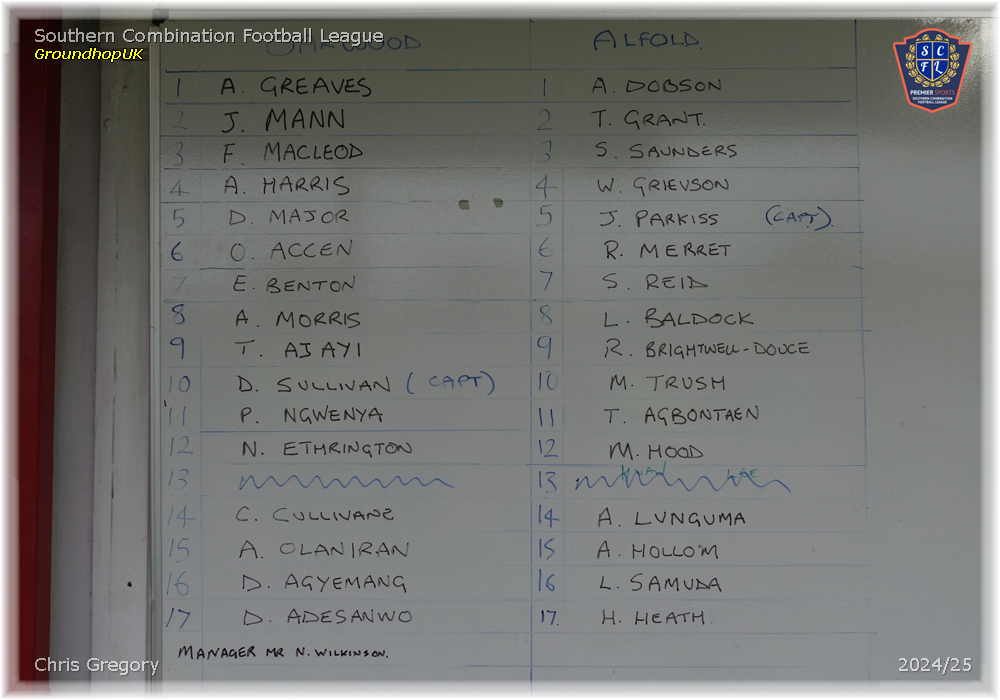 Southern Combination Football League
GroundhopUK
OAKWOOD ALFOLD.
S C F L
PREMIER SPORTS
SOUTHERN COMBINATION
FOOTBALL LEAGUE
1 A. GREAVES 1 A. DOBSON
2 J. MANN 2 T. GRANT.
3 F. MACLEOD 3 S. SAUNDERS
4 A. HARRIS 4 W. GRIEVSON
5 D. MAJOR 5 J. PARKISS (CAPT).
6 O. ACCEN 6 R. MERRET
7 E. BENTON 7 S. REID
8 A. MORRIS 8 L. BALDOCK
9 T. AJAYI 9 R. BRIGHTWELL-DOUCE
10 D. SULLIVAN (CAPT) 10 M. TRUSH
11 P. NGWENYA 11 T. AGBONTAEN
12 N. ETHRINGTON 12 M. HOOD
13 13
14 C. CULLIVANE 14 A. LUNGUMA
15 A. OLANIRAN 15 A. HOLLOM
16 D. AGYEMANG 16 L. SAMUDA
17 D. ADESANWO 17. H. HEATH.
MANAGER MR N. WILKINSON.
Chris Gregory 2024/25